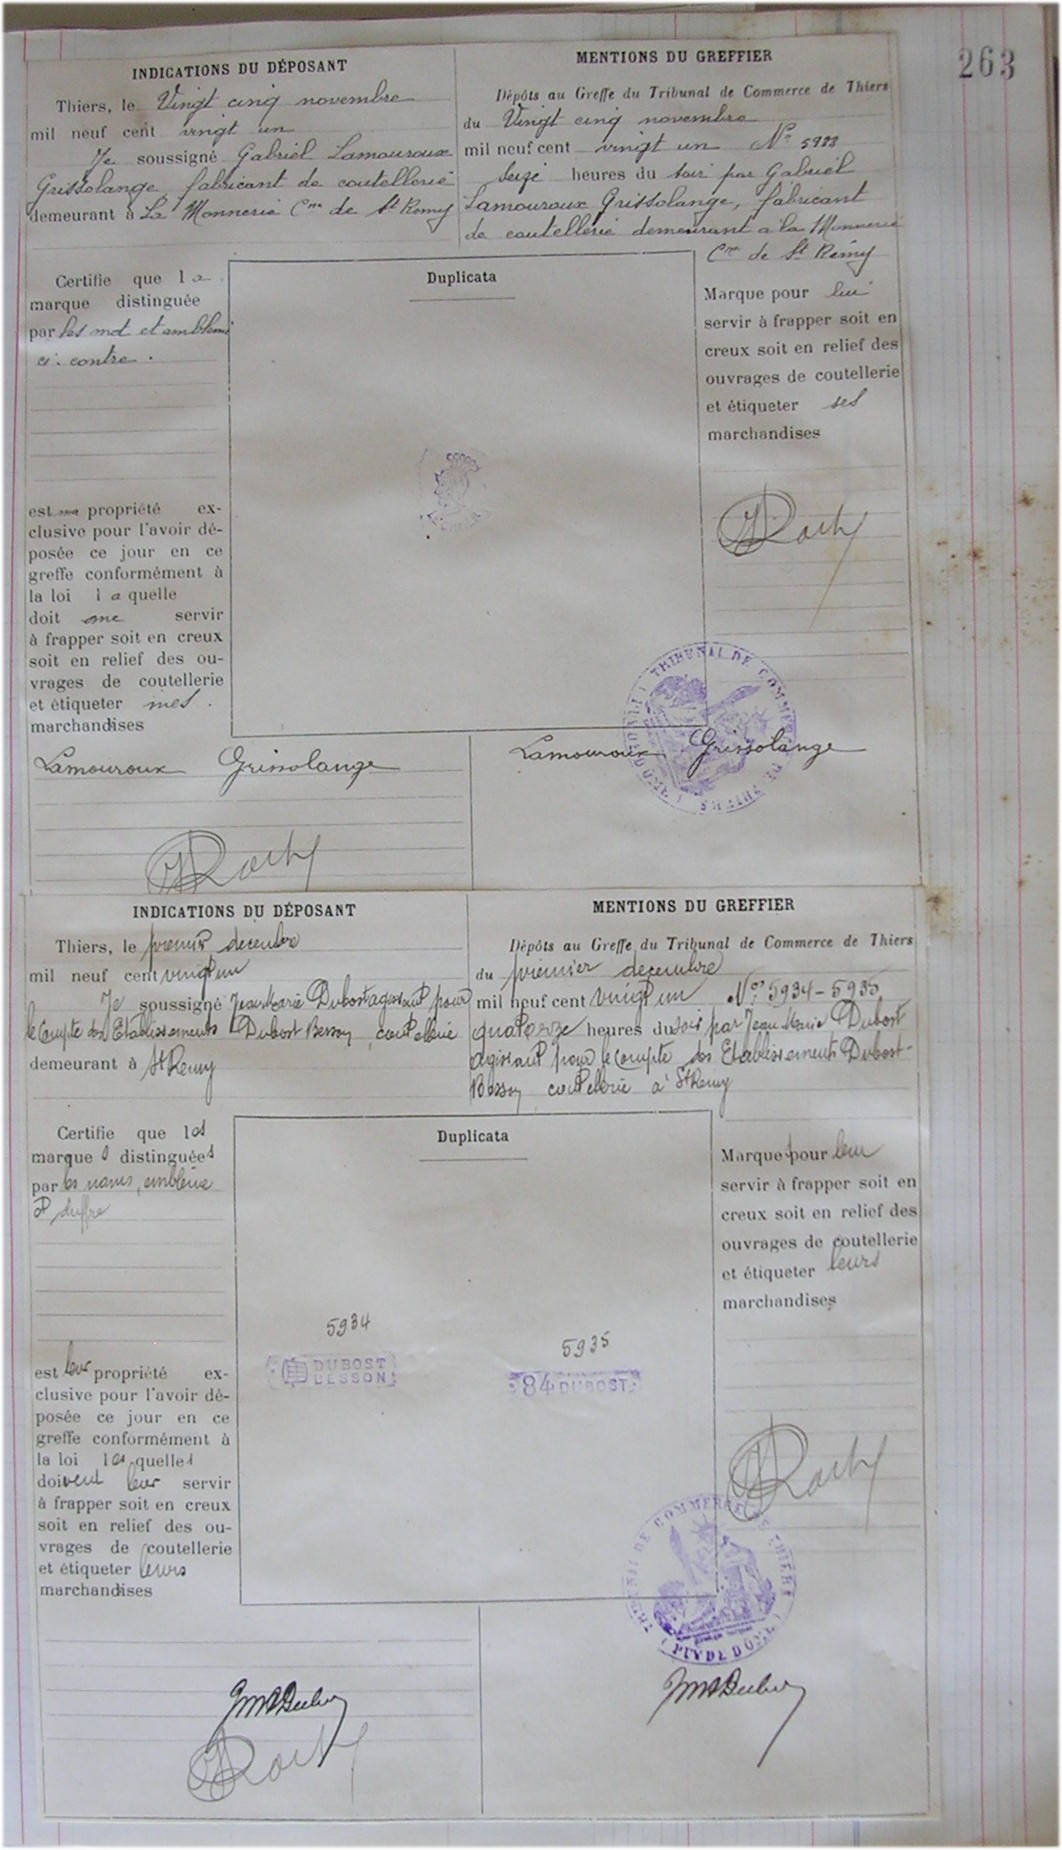 263
INDICATIONS DU DÉPOSANT
Thiers, le Vingt cinq novembre
mil neuf cent vingt un
Je soussigné Gabriel Lamouroux
Grissolange, fabricant de coutellerie
demeurant à La Monnerie Cne de St Remy
MENTIONS DU GREFFIER
Dépôts au Greffe du Tribunal de Commerce de Thiers
du Vingt cinq novembre
mil neuf cent vingt un No
Seize heures du soir par Gabriel
Lamouroux Grissolange, fabricant
de coutellerie demeurant à la Monnerie
Cne de St Rémy
Certifie que la
marque distinguée
par les mot et emblème
ci-contre.
est ma propriété ex-
clusive pour l'avoir dé-
posée ce jour en ce
greffe conformément à
la loi la quelle
doit me servir
à frapper soit en creux
soit en relief des ou-
vrages de coutellerie
et étiqueter mes
marchandises
Duplicata
Marque pour lui
servir à frapper soit en
creux soit en relief des
ouvrages de coutellerie
et étiqueter ses
marchandises
TRIBUNAL DE COMMERCE DE THIERS
Lamouroux Grissolange
Lamouroux Grissolange
INDICATIONS DU DÉPOSANT
Thiers, le premier decembre
mil neuf cent vingt un
Je soussigné Jean Marie Dubost agissant pour
le Compte des Etablissements Dubost Besson, coutellerie
demeurant à St Remy
MENTIONS DU GREFFIER
Dépôts au Greffe du Tribunal de Commerce de Thiers
du premier decembre
mil neuf cent vingt un Nos 5934-5935
quatorze heures du soir par Jean Marie Dubost
agissant pour le compte des Etablissements Dubost-
Besson coutellerie à St Remy
Certifie que les
marques distinguées
par les noms, emblème
et chiffre
est leur propriété ex-
clusive pour l'avoir dé-
posée ce jour en ce
greffe conformément à
la loi les quelles
doivent leur servir
à frapper soit en creux
soit en relief des ou-
vrages de coutellerie
et étiqueter leurs
marchandises
Duplicata
5934
DUBOST
BESSON
5935
84 DUBOST
Marque pour leur
servir à frapper soit en
creux soit en relief des
ouvrages de coutellerie
et étiqueter leurs
marchandises
TRIBUNAL DE COMMERCE DE THIERS
(PUY DE DOME)